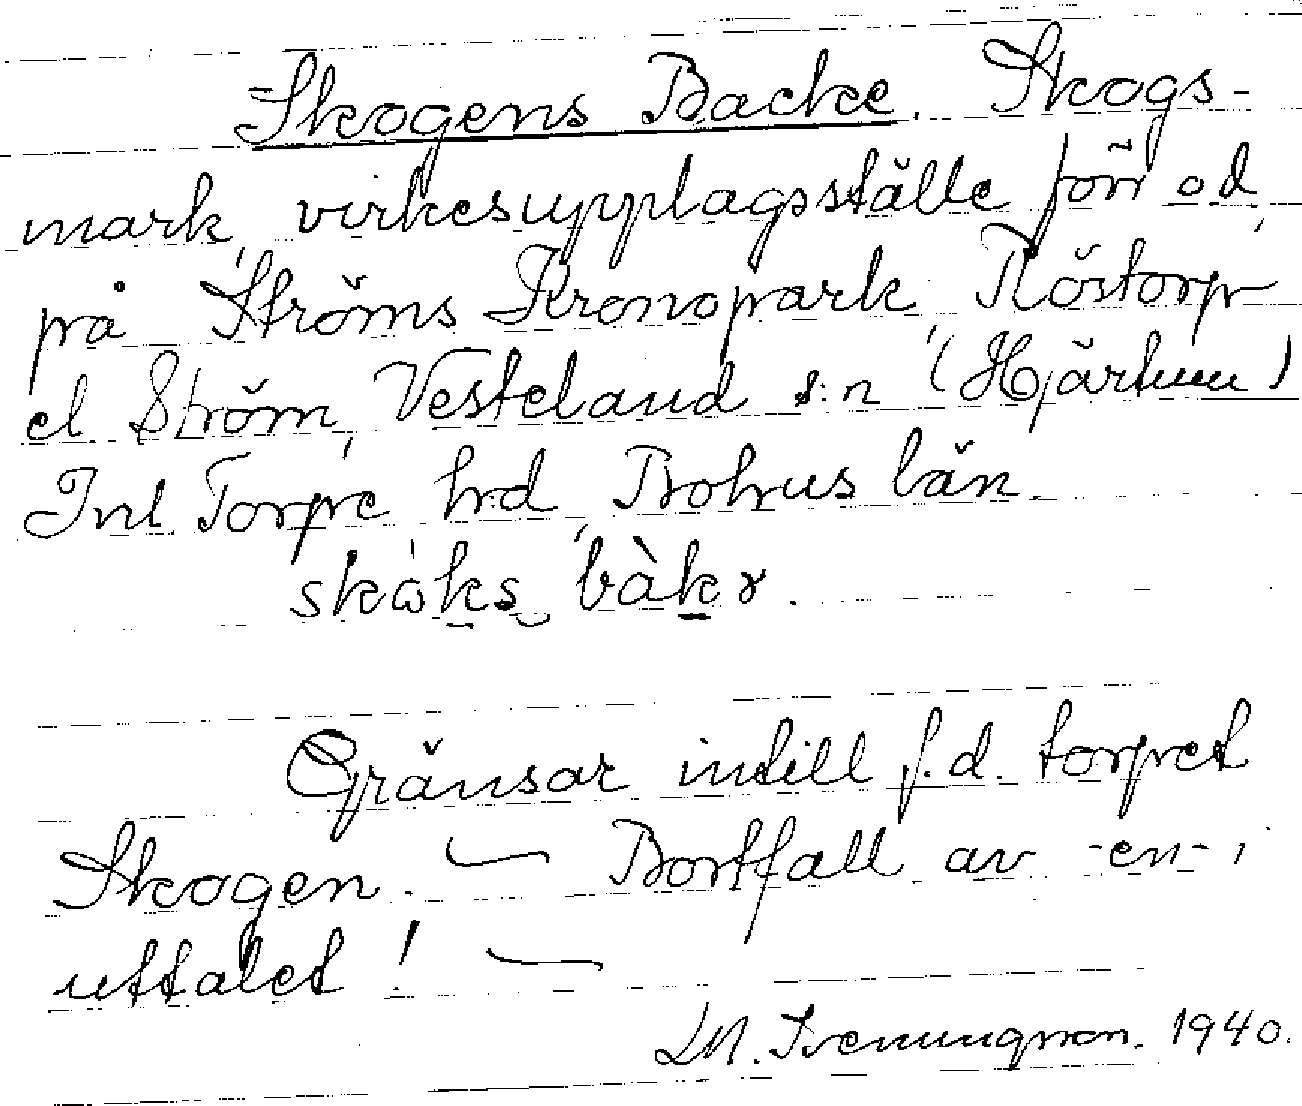 Skogens Backe. Skogs-
mark, virkesupplagsställe förr o d,
på Ströms Kronopark, Röstorp
el Ström, Vesteland s:n (Hjärtum)
Inl Torpe hrd, Bohus län.
Gränsar intill f.d. torpet
Skogen. — Bortfall av -en- i
uttalet! —
1940.